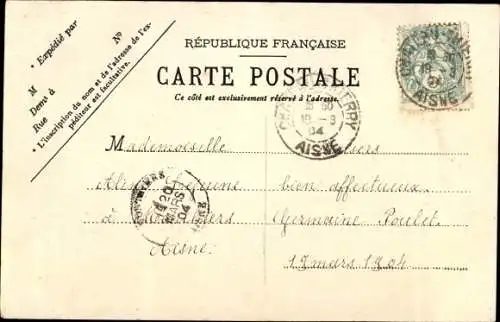 * Expédié par
No
M
Demt à
Rue
* L'inscription du nom et de l'adresse de l'ex-
péditeur est facultative.
RÉPUBLIQUE FRANÇAISE
CARTE POSTALE
Ce côté est exclusivement réservé à l'adresse.
AISNE
THIERRY
18 - 3
04
AISNE
Mademoiselle
Aline
à
Aisne
20
MARS
04
bien affectueux
Germaine Poulet
17 mars 1904